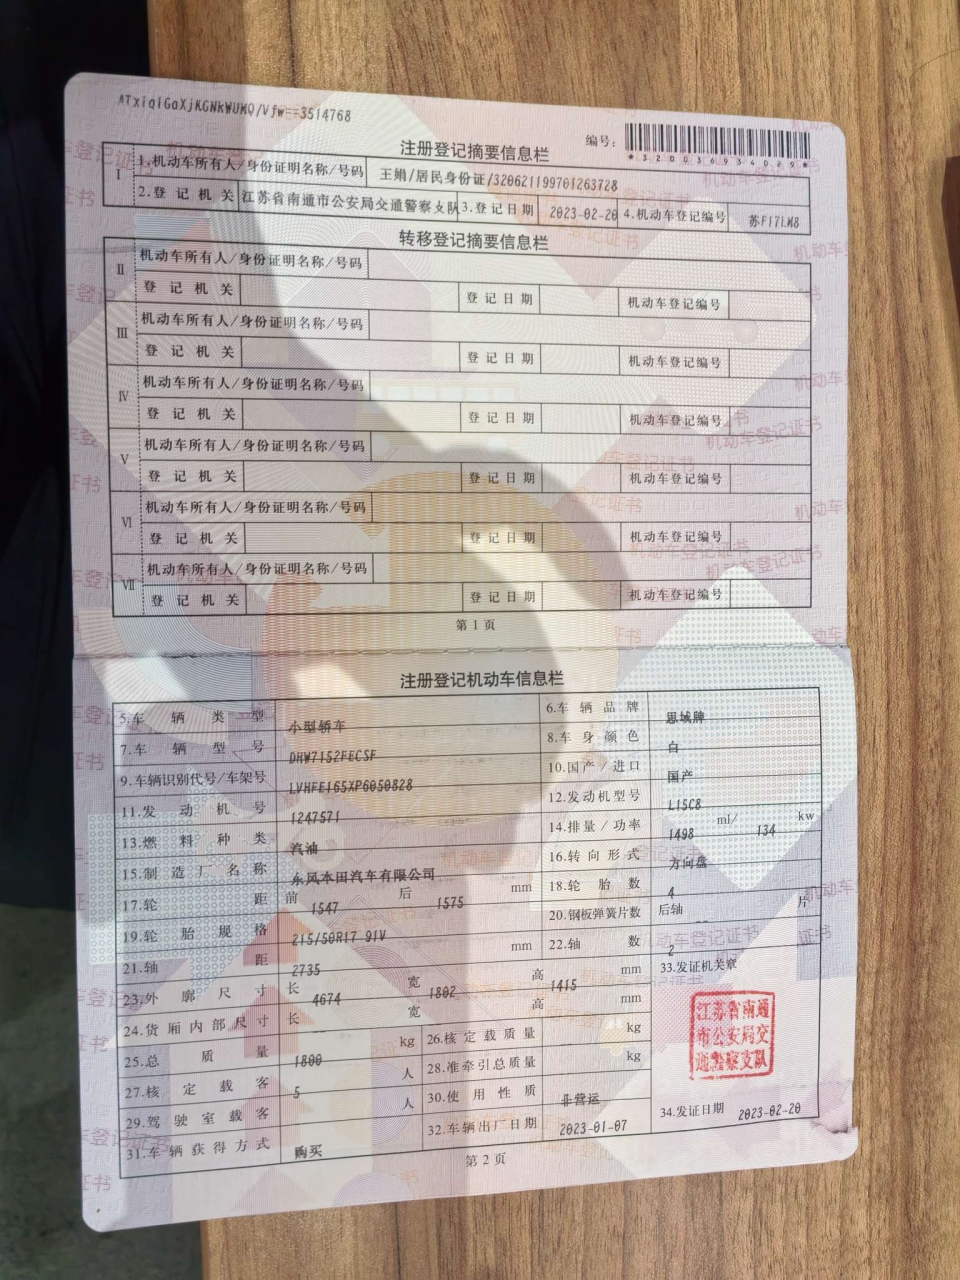 ATxiqiGaXjKGNkWUMQ/Vfw==3514768
编号:
*320036934029*
注册登记摘要信息栏
I 1.机动车所有人/身份证明名称/号码 王娟/居民身份证/320621199701263728
2.登记机关 江苏省南通市公安局交通警察支队 3.登记日期 2023-02-20 4.机动车登记编号 苏F17LM8
转移登记摘要信息栏
II 机动车所有人/身份证明名称/号码
登记机关 登记日期 机动车登记编号
III 机动车所有人/身份证明名称/号码
登记机关 登记日期 机动车登记编号
IV 机动车所有人/身份证明名称/号码
登记机关 登记日期 机动车登记编号
V 机动车所有人/身份证明名称/号码
登记机关 登记日期 机动车登记编号
VI 机动车所有人/身份证明名称/号码
登记机关 登记日期 机动车登记编号
VII 机动车所有人/身份证明名称/号码
登记机关 登记日期 机动车登记编号
第1页
注册登记机动车信息栏
5.车辆类型 小型轿车 6.车辆品牌 思域牌
7.车辆型号 DHW7152FECSF 8.车身颜色 白
9.车辆识别代号/车架号 LVHFE165XP6050828 10.国产/进口 国产
11.发动机号 1247571 12.发动机型号 L15C8
13.燃料种类 汽油 14.排量/功率 1498 ml/ 134 kw
15.制造厂名称 东风本田汽车有限公司 16.转向形式 方向盘
17.轮距 前 1547 后 1575 mm 18.轮胎数 4
19.轮胎规格 215/50R17 91V 20.钢板弹簧片数 后轴 -- 片
21.轴距 2735 mm 22.轴数 2
23.外廓尺寸 长 4674 宽 1802 高 1415 mm 33.发证机关章
24.货厢内部尺寸 长 宽 高 mm
25.总质量 1800 kg 26.核定载质量 kg
27.核定载客 5 人 28.准牵引总质量 kg
29.驾驶室载客 人 30.使用性质 非营运
31.车辆获得方式 购买 32.车辆出厂日期 2023-01-07 34.发证日期 2023-02-20
江苏省南通
市公安局交
通警察支队
第2页